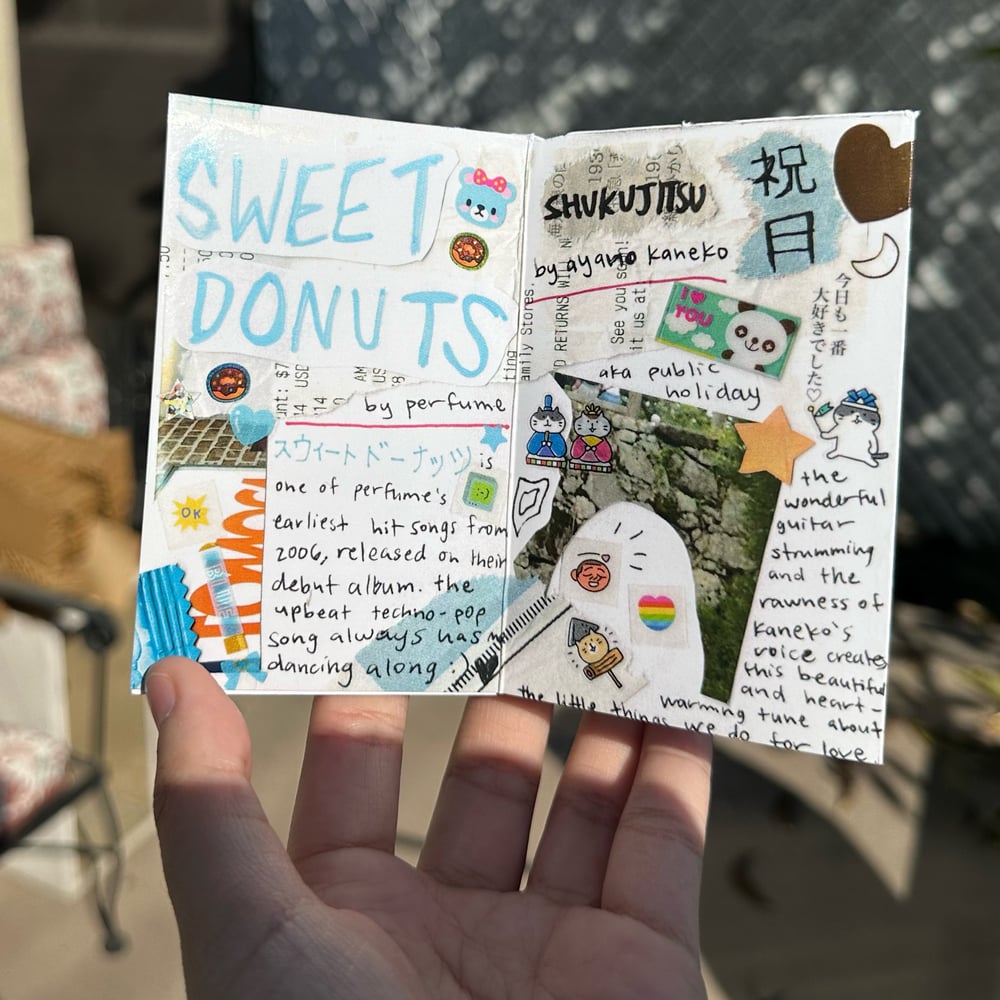 SWEET
DONUTS
by perfume
スウィートドーナッツ is
one of perfume's
earliest hit songs from
2006, released on their
debut album. the
upbeat techno-pop
song always has m
dancing along :)
OK
SHUKUJITSU
祝
日
by ayano kaneko
I ♥
YOU
今日も一番
大好きでした♡
aka public
holiday
See you soon!
it us at
D RETURNS WILL N
amily Stores.
ting
193
から
unt: $7
USD
AM
US
the
wonderful
guitar
strumming
and the
rawness of
Kaneko's
voice creates
this beautiful
and heart-
warming tune about
the little things we do for love